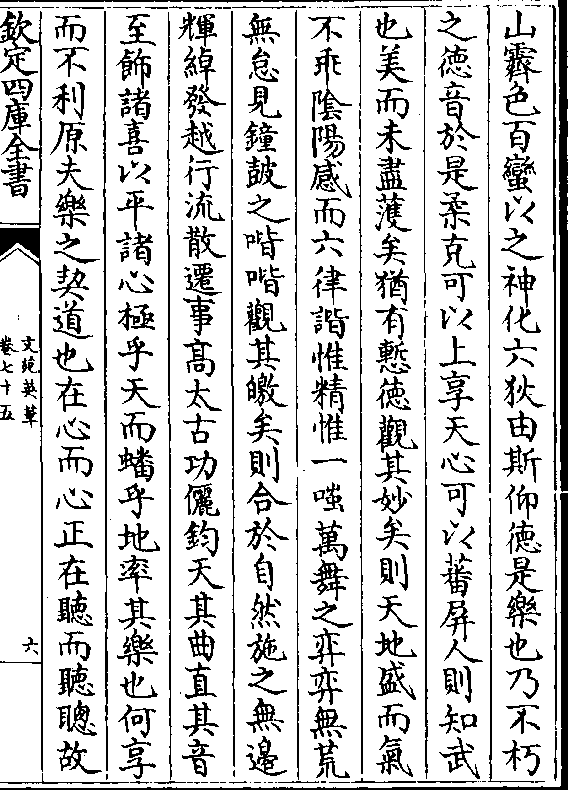 山霽色百蠻以之神化六狄由斯仰徳是樂也乃不朽
之徳音於是柔克可以上享天心可以蕃屏人則知武
也美而未盡䕶矣猶有慙徳觀其妙矣則天地盛而氣
不乖隂陽感而六律諧惟精惟一嗤萬舞之弈弈無荒
無怠見鐘皷之喈喈觀其皦矣則合於自然施之無邉
輝綽發越行流散遷事髙太古功儷鈞天其曲直其音
至飾諸喜以平諸心極乎天而蟠乎地率其樂也何享
而不利原夫樂之契道也在心而心正在聽而聽聰故
欽定四庫全書
文苑英華
卷七十五
六